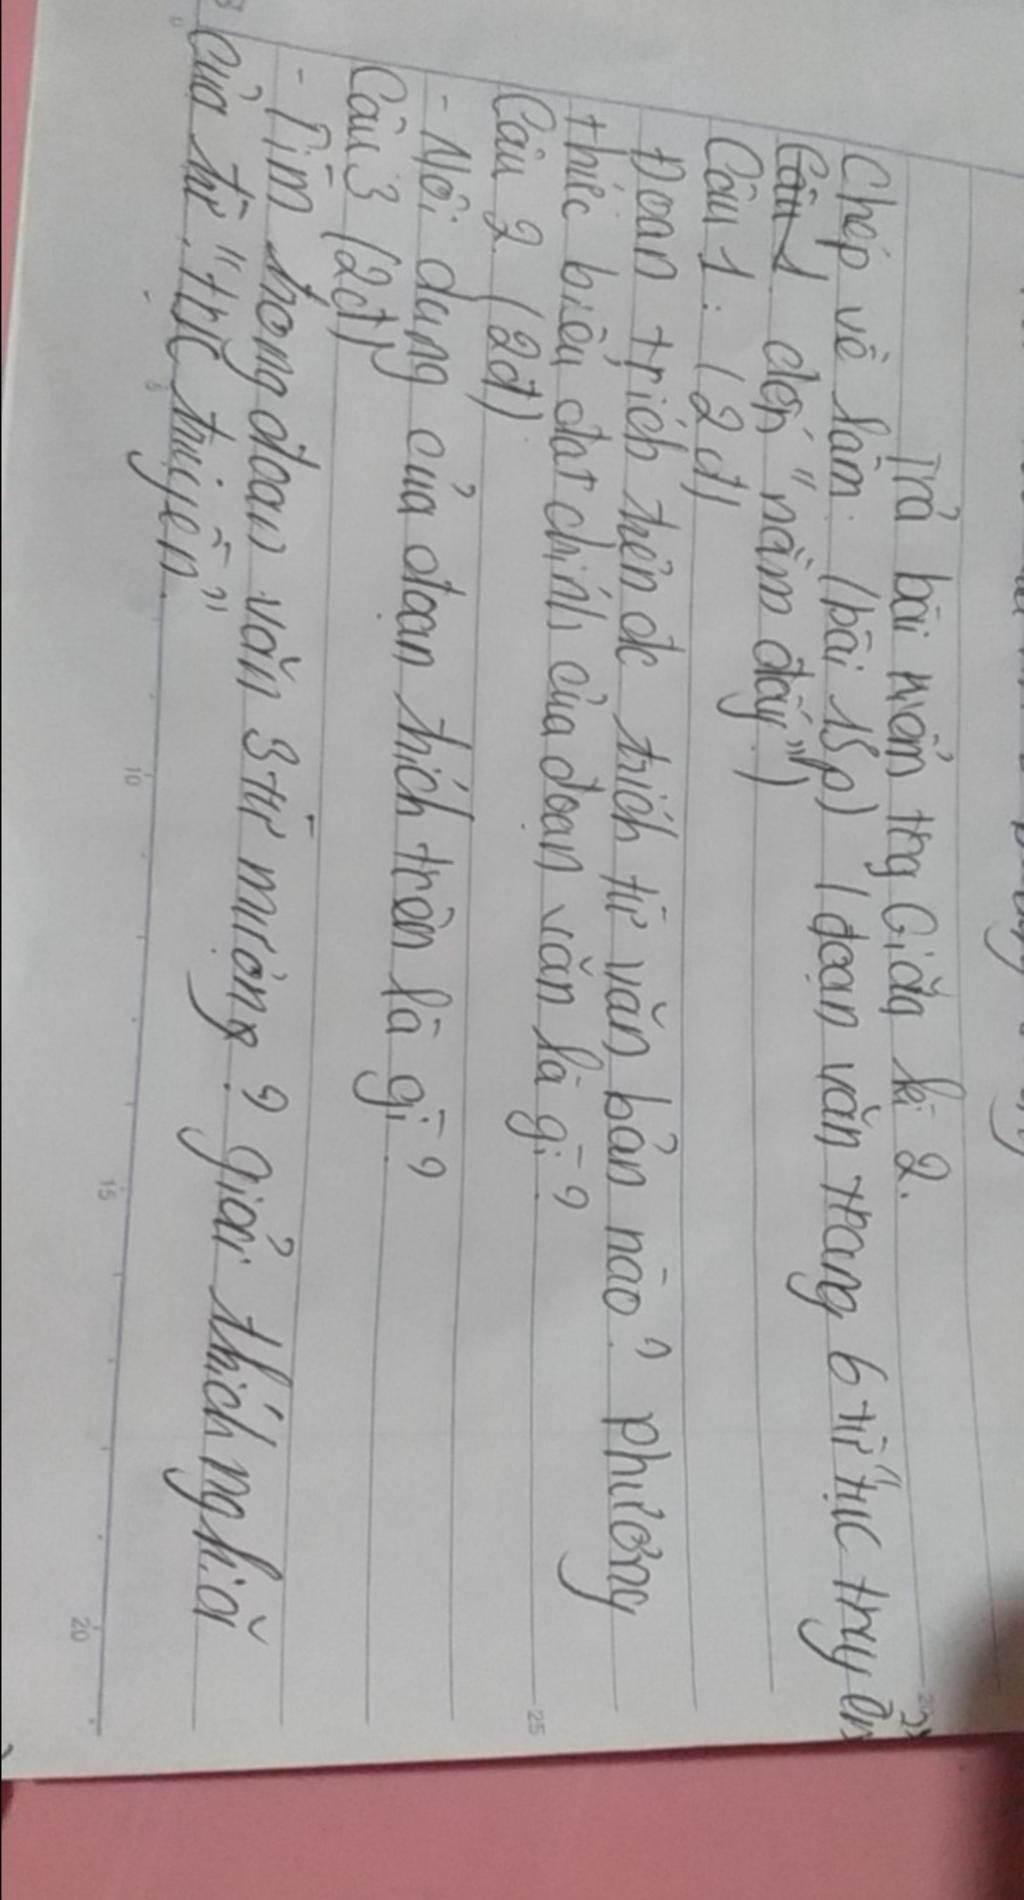 Trả bài kiểm trg Giữa kì 2.
Chép về làm. (bài 15p) (đoạn văn trang 6 từ "tục truyền"
Câu 1 đến "nằm đấy")
Câu 1: (2đ)
Đoạn trích trên đc trích từ văn bản nào? phương
thức biểu đạt chính của đoạn văn là gì?
Câu 2 (2đ)
- Nội dung của đoạn trích trên là gì?
Câu 3 (2đ)
- Tìm trong đoạn văn 3 từ mượn? giải thích nghĩa
của từ "tục truyền".